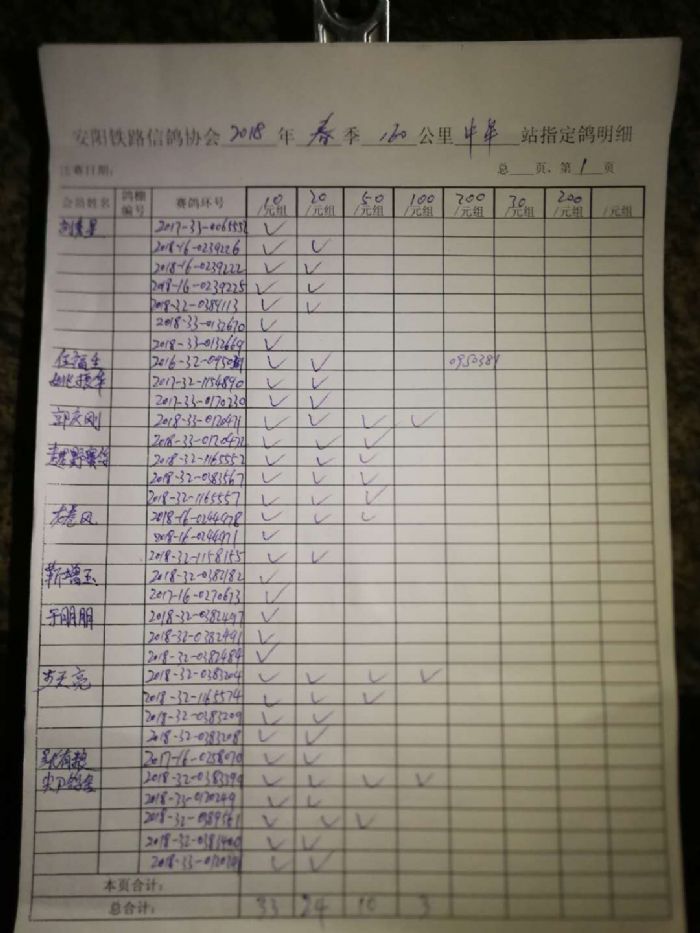 安阳铁路信鸽协会 2018 年 春 季 160 公里 中牟 站指定鸽明细
注赛日期: 总 页. 第 1 页
会员姓名 鸽棚编号 赛鸽环号 10/元组 20/元组 50/元组 100/元组 200/元组 30/元组 200/元组 /元组
2018-16-0239226 ✓ ✓
2018-16-0239222 ✓ ✓
2018-16-0239225 ✓ ✓
2018-32-0389113 ✓ ✓
2018-33-0132670 ✓
2018-33-0132669 ✓
任福生 2016-32-0950381 ✓ ✓ 0950381
2017-32-1154890 ✓ ✓
2017-33-0170230 ✓ ✓
郭庆刚 2018-33-0120471 ✓ ✓ ✓ ✓
2018-33-0120472 ✓ ✓ ✓
2018-32-1165552 ✓ ✓ ✓
2018-32-0383567 ✓ ✓ ✓
2018-32-1165557 ✓ ✓ ✓
2018-16-0244978 ✓ ✓ ✓
2018-16-0244971 ✓
2018-32-1158155 ✓ ✓
靳增玉 2018-32-0382182 ✓
2017-16-0270673 ✓
于朋朋 2018-32-0382497 ✓
2018-32-0382491 ✓
2018-32-0382484 ✓
2018-32-0383204 ✓ ✓ ✓ ✓
2018-32-1165574 ✓ ✓ ✓
2018-32-0383209 ✓ ✓
2018-32-0383208 ✓ ✓
2017-16-0258070 ✓ ✓
2018-32-0383399 ✓ ✓ ✓ ✓
2018-33-0120249 ✓ ✓
2018-32-0389561 ✓ ✓ ✓
2018-32-0381400 ✓ ✓
✓ ✓
本页合计:
总合计: 33 24 10 3